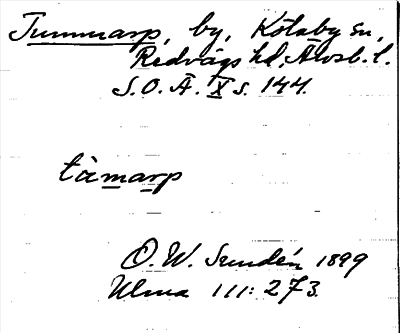 Tummarp, by, Kölaby sn,
Redvägs hd, Älvsb. l.
S.O.Ä. X s. 144.
tåmarp
O. W. Sundén 1899
Ulma 111: 273.